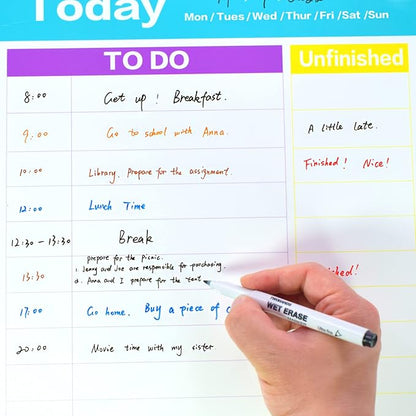 Today
Mon / Tues / Wed / Thur / Fri / Sat / Sun
TO DO
Unfinished
8:00
Get up! Breakfast.
9:00
Go to school with Anna.
A little late.
10:00
Library. Prepare for the assignment.
Finished! Nice!
12:00
Lunch Time
12:30 - 13:30
Break
13:30
prepare for the picnic.
1. Jenny and Joe are responsible for purchasing.
2. Anna and I prepare for the tent
17:00
Go home. Buy a piece of
20:00
Movie time with my sister.
WET ERASE